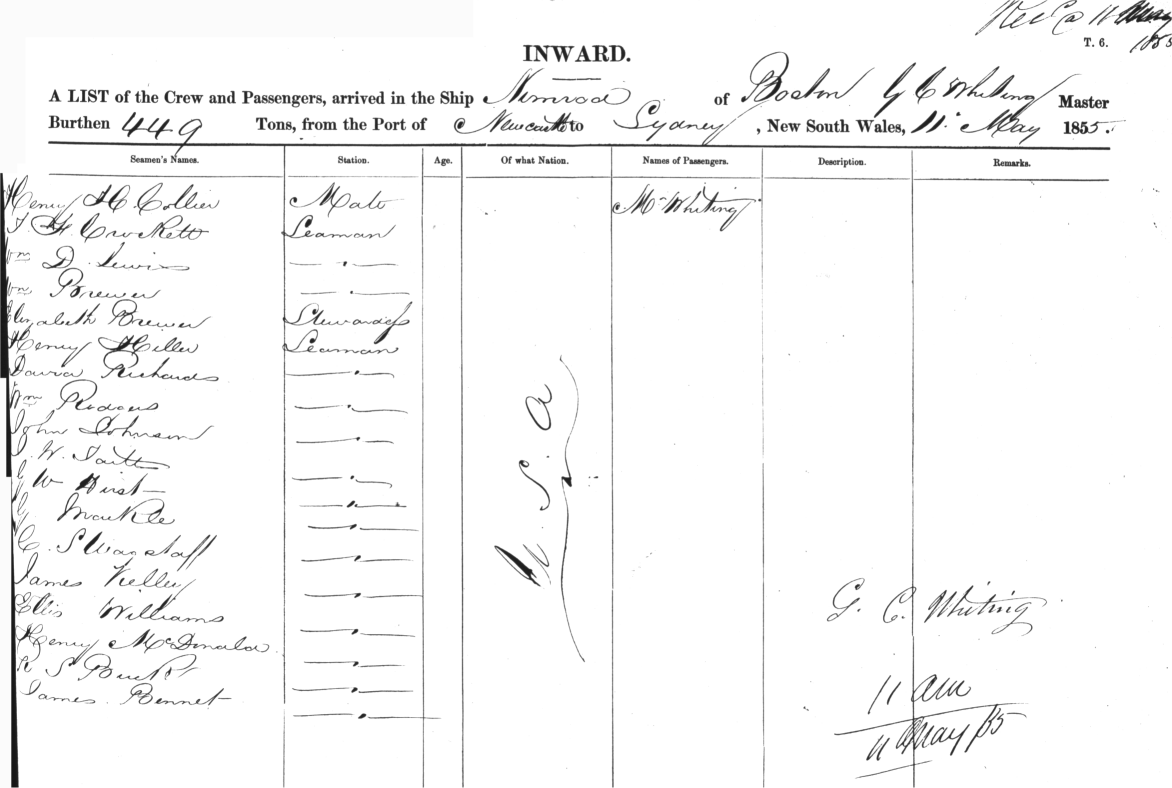 Rec'd 11 May
1855
T. 6.
INWARD.
A LIST of the Crew and Passengers, arrived in the Ship Nimrod of Boston G C Whiting Master
Burthen 449 Tons, from the Port of Newcastle to Sydney, New South Wales, 11 May 1855.
Seamen's Names. Station. Age. Of what Nation. Names of Passengers. Description. Remarks.
Henry H Collier Mate Mr Whiting
Crockett Seaman
Wm D. Lewis —"—
Wm Brewer —"—
Elizabeth Brewer Stewardess
Henry Hiller Seaman
David Richards —"—
Wm Rodgers —"—
John Johnson —"—
W. —"—
W Hirst —"—
Markle —"—
C. S Wagstaff —"—
James Kelley —"—
Ellis Williams —"—
Henry McDonald —"—
R S —"—
James Bennet —"—
U. S. a
G. C. Whiting
11 am
11 May /55